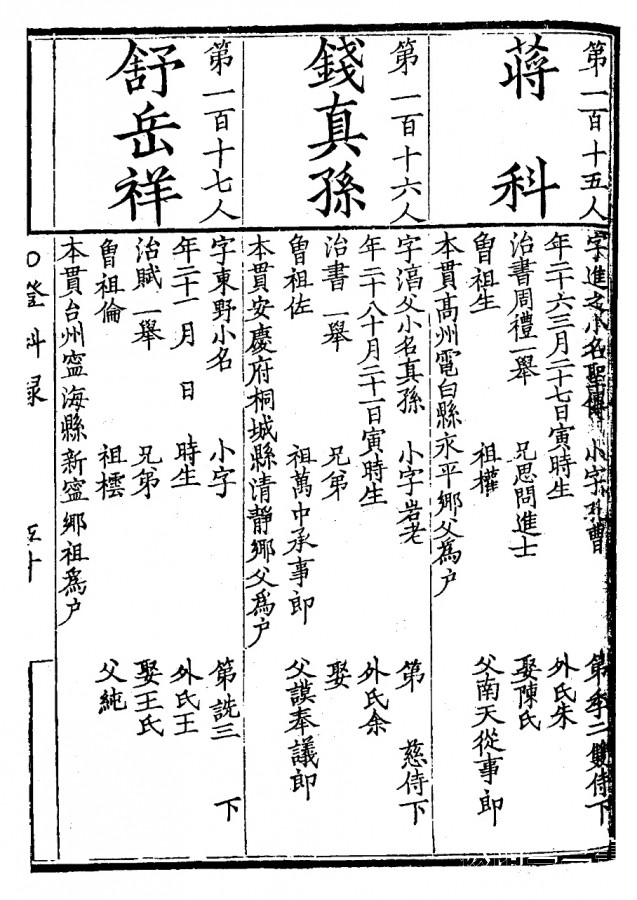 第一百十五人
蔣科
字進之小名聖傳 小字 曹 第 二雙侍下
年二十六三月二十七日寅時生 外氏朱
治書周禮一舉 兄思問進士 娶陳氏
曾祖生 祖權 父南天從事郎
本貫高州電白縣永平鄉父爲户
第一百十六人
錢真孫
字滔父小名真孫 小字岩老 第 慈侍下
年二十八十月二十一日寅時生 外氏余
治書一舉 兄弟 娶
曾祖佐 祖萬中承事郎 父謨奉議郎
本貫安慶府桐城縣清靜鄉父爲户
第一百十七人
舒岳祥
字東野小名 小字 第詵三 下
年二十一月 日 時生 外氏王
治賦一舉 兄弟 娶王氏
曾祖倫 祖橒 父純
本貫台州寧海縣新寧鄉祖爲户
登科录 五十